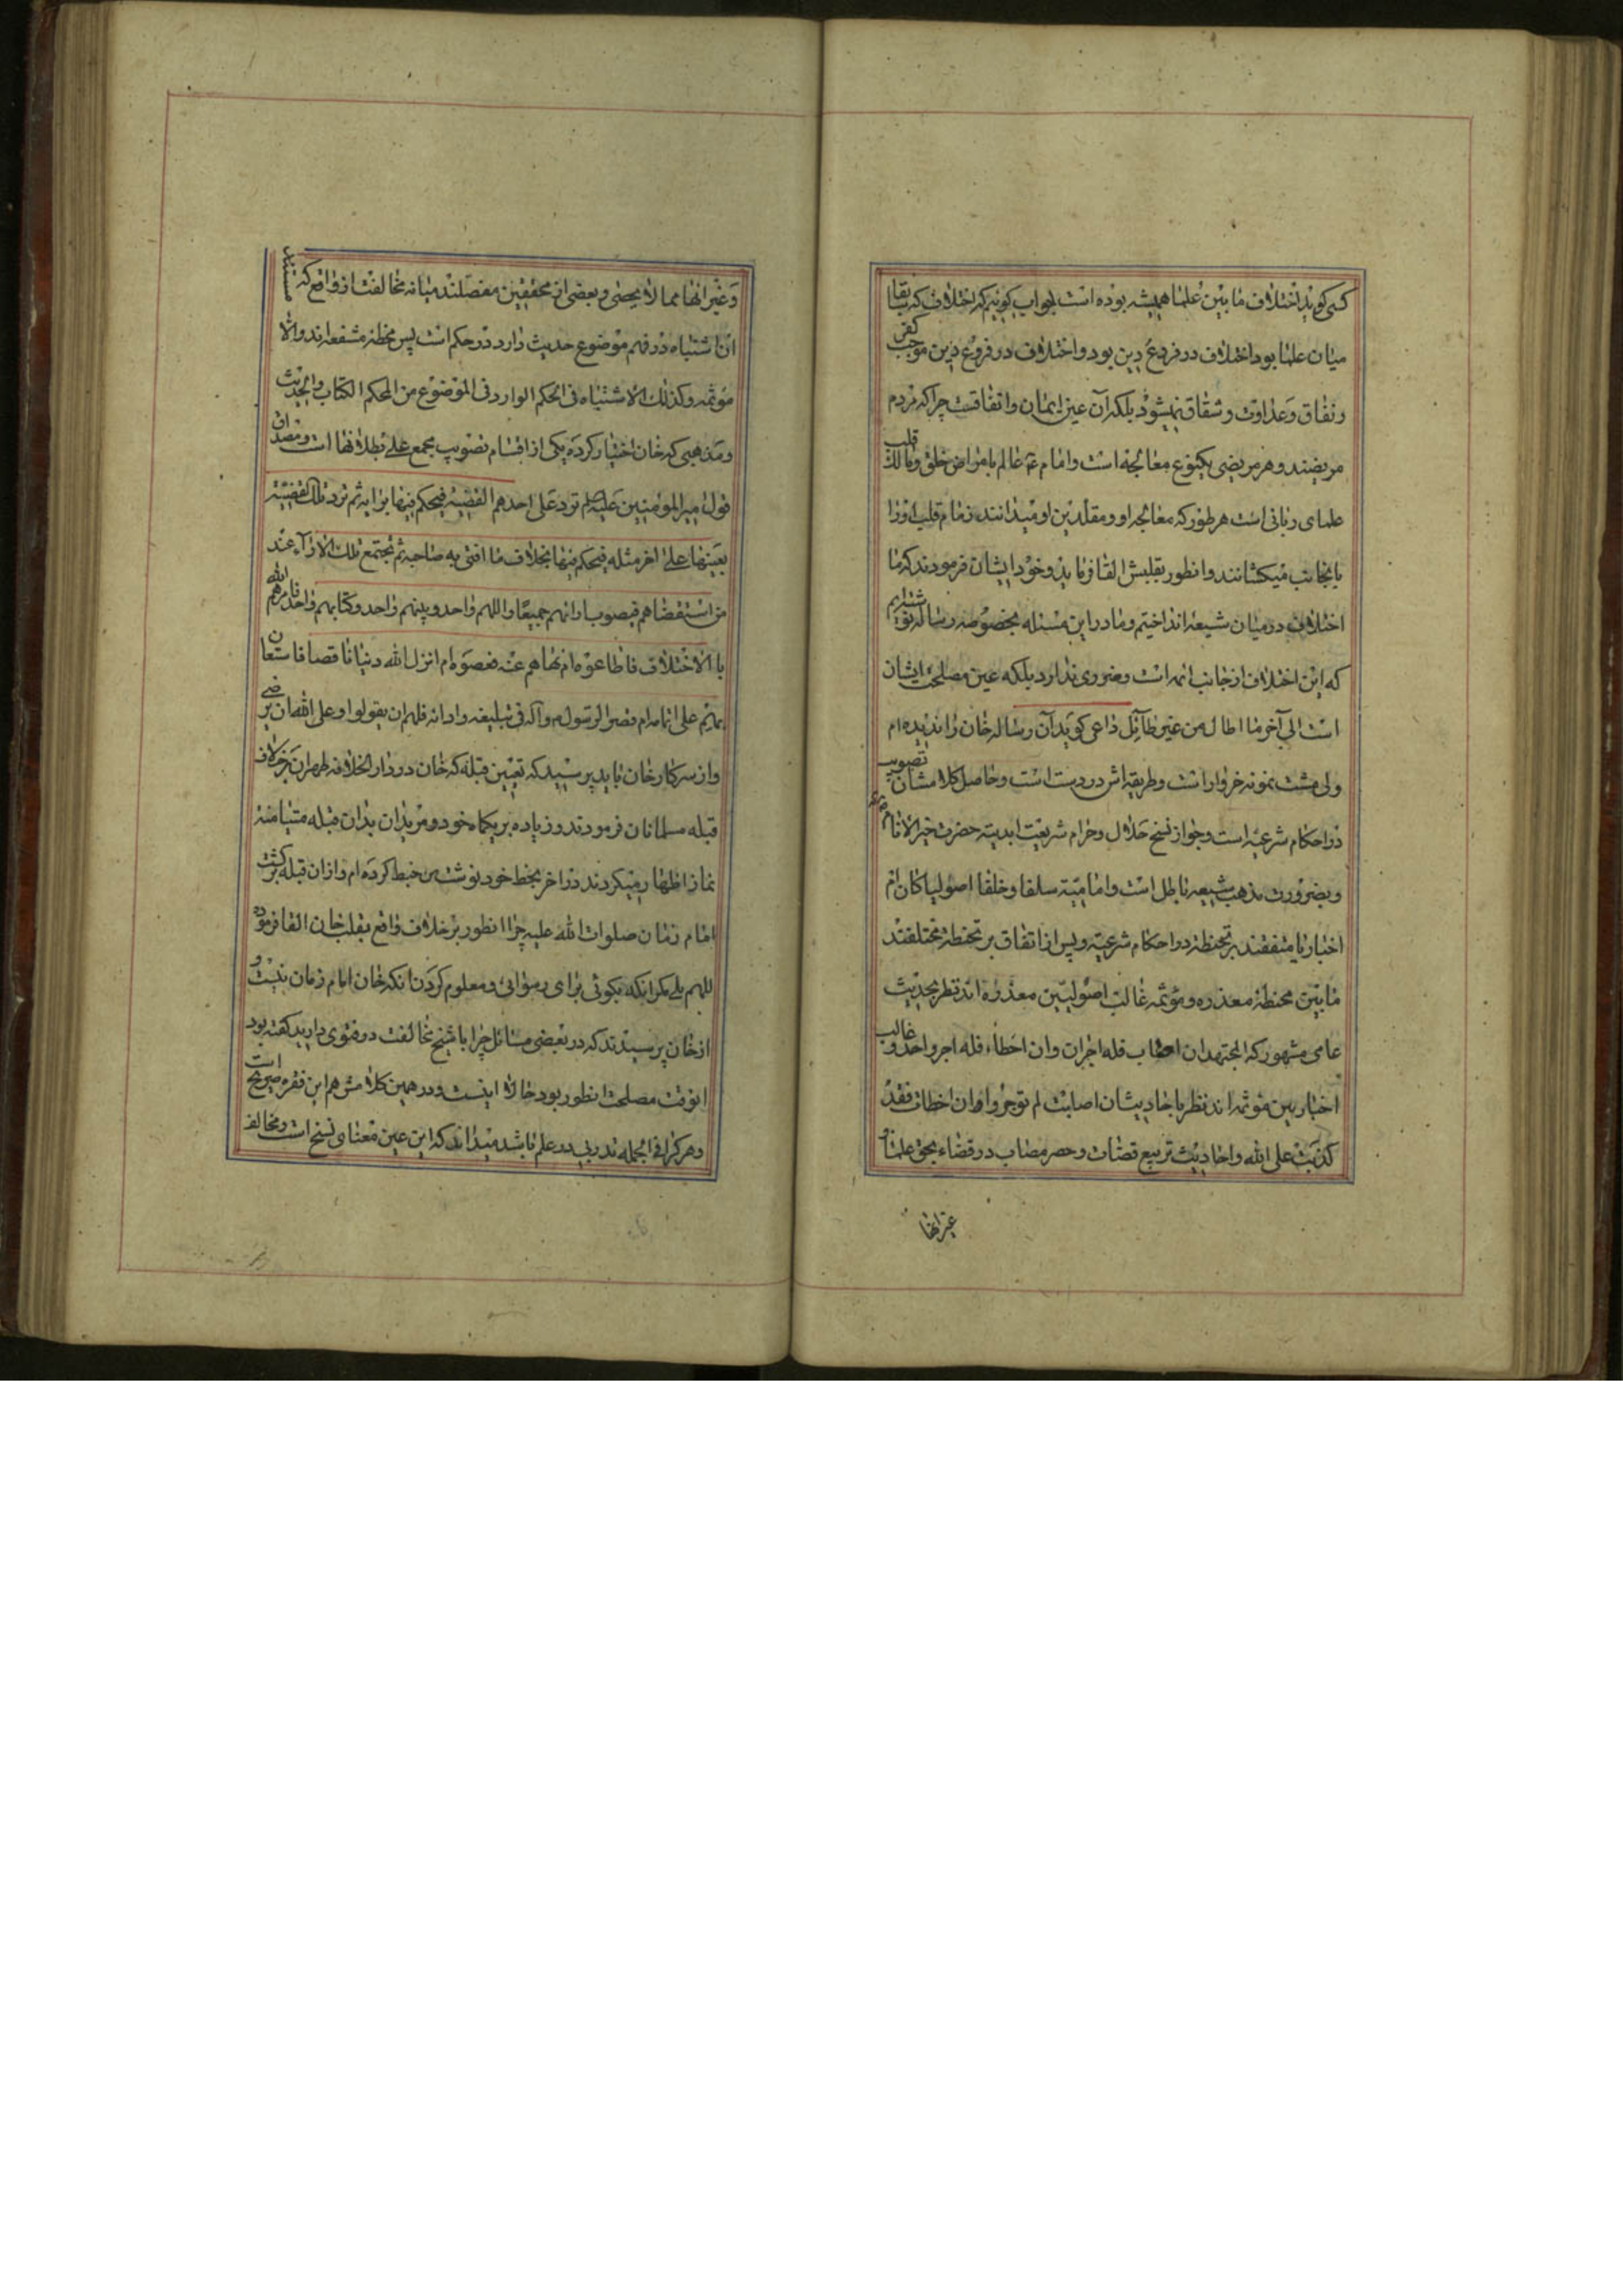 کسی کوید اختلاف مابین علما همیشه بوده است جواب کوئیم که اختلاف که سابقا
میان علما بود اختلاف در فروع دین بود و اختلاف در فروع دین موجب کفر
و نفاق و عداوت و شقاق نمیشود بلکه آن عین ایمان و اتفاقست چرا که مردم
مریضند و هر مریضی یکنوع معالجه است و امام ع عالم بامراض خلق و مالک قلب
علمای ربانی است هر طور که معالجه او و مقلدین او میدانند زمام قلب او را
بانجانب میکشانند و انطور بقلبش القا فرماید و خود ایشان فرمودند که ما
اختلاف در میان شیعه انداختیم و ما در این مسئله بخصوصه رساله نوشته‌ایم
که این اختلاف از جانب ائمه است و ضرری ندارد بلکه عین مصلحت ایشان
است الی آخر ما اطال من غیر طائل داعی کوید آن رساله خان را ندیده ام
ولی مشت نمونه خروار است و طریقه اش در دست است و حاصل کلامشان تصویب
در احکام شرعیه است و جواز نسخ حلال و حرام شریعت ابدیته حضرت خیر الانام
و بضرورت مذهب شیعه باطل است و امامیّه سلفا و خلفا اصولیا کان ام
اخباریا متفقند بر تخطئه در احکام شرعیّه و پس از اتفاق بر تخطئه مختلفند
مابین مخطئه معذره و مؤثمه غالب اصولیّین معذره اند نظر بحدیث
عامی مشهور که المجتهد ان اصاب فله اجران و ان اخطاء فله اجر واحد و غالب
اخباریین مؤثمه اند نظر باحادیثشان اصابت لم توجر و ان اخطات فقد
کذبت علی الله و احادیث تربیع قضات و حصر مصاب در قضاء بحق علما و
غیر انها
و غیر انها مما لا یحصی و بعضی از محققین مفصلند میانه مخالفت از واقع که مستند
ان اشتباه در فهم موضوع حدیث وارد در حکم است پس مخطئه مشفعه اند و الا
مؤثمه و کذلک الاشتباه فی الحکم الوارد فی الموضوع من المحکم الکتاب و الحدیث
و مذهبی که خان اختیار کرده یکی از اقسام تصویب مجمع علی بطلانها است و مصداق
قول امیر المومنین علیه السلم ترد علی احدهم القضیّه فیحکم فیها برایه ثم ترد تلک القضیّه
بعینها علی اخر مثله فیحکم فیها بخلاف ما افتی به صاحبه ثم تجتمع تلک الاراء عند
من استقضاهم فیصوب اراءهم جمیعًا و اللهم واحد و نبیهم واحد و کتابهم واحد فامرهم الله
بالاختلاف فاطاعوه ام نهاهم عنه فعصوه ام انزل الله دینا ناقصا فاستعان
بهم علی اتمامه ام قصر الرسول ص و آله فی تبلیغه و ادائه فلهم ان یقولوا و علی الله ان یرضی
و از سرکار خان باید پرسید که تعیین قبله که خان در دار الخلافه طهران بر خلاف
قبله مسلمانان فرمودند و زیاده بر یکماه خود و مریدان بدان قبله متیامنه
نماز اظهار میکردند در اخر بخط خود نوشت من خبط کرده ام و از ان قبله برکشت
امام زمان صلوات الله علیه چرا انطور بر خلاف واقع بقلب خان القا فرموده
اللهم بلی مکر اینکه بکوئی برای رسوائی و معلوم کردن انکه خان امام زمان نیست و
از خان پرسیدند که در بعضی مسائل چرا با شیخ مخالفت در فتوی دارید کفته بود
انوقت مصلحت انطور بود حالا اینست و در همین کلامش هم این فقره صریح است
و هر کرا فی الجمله تدربی در علم باشد میداند که این عین معنای نسخ است و مخالف